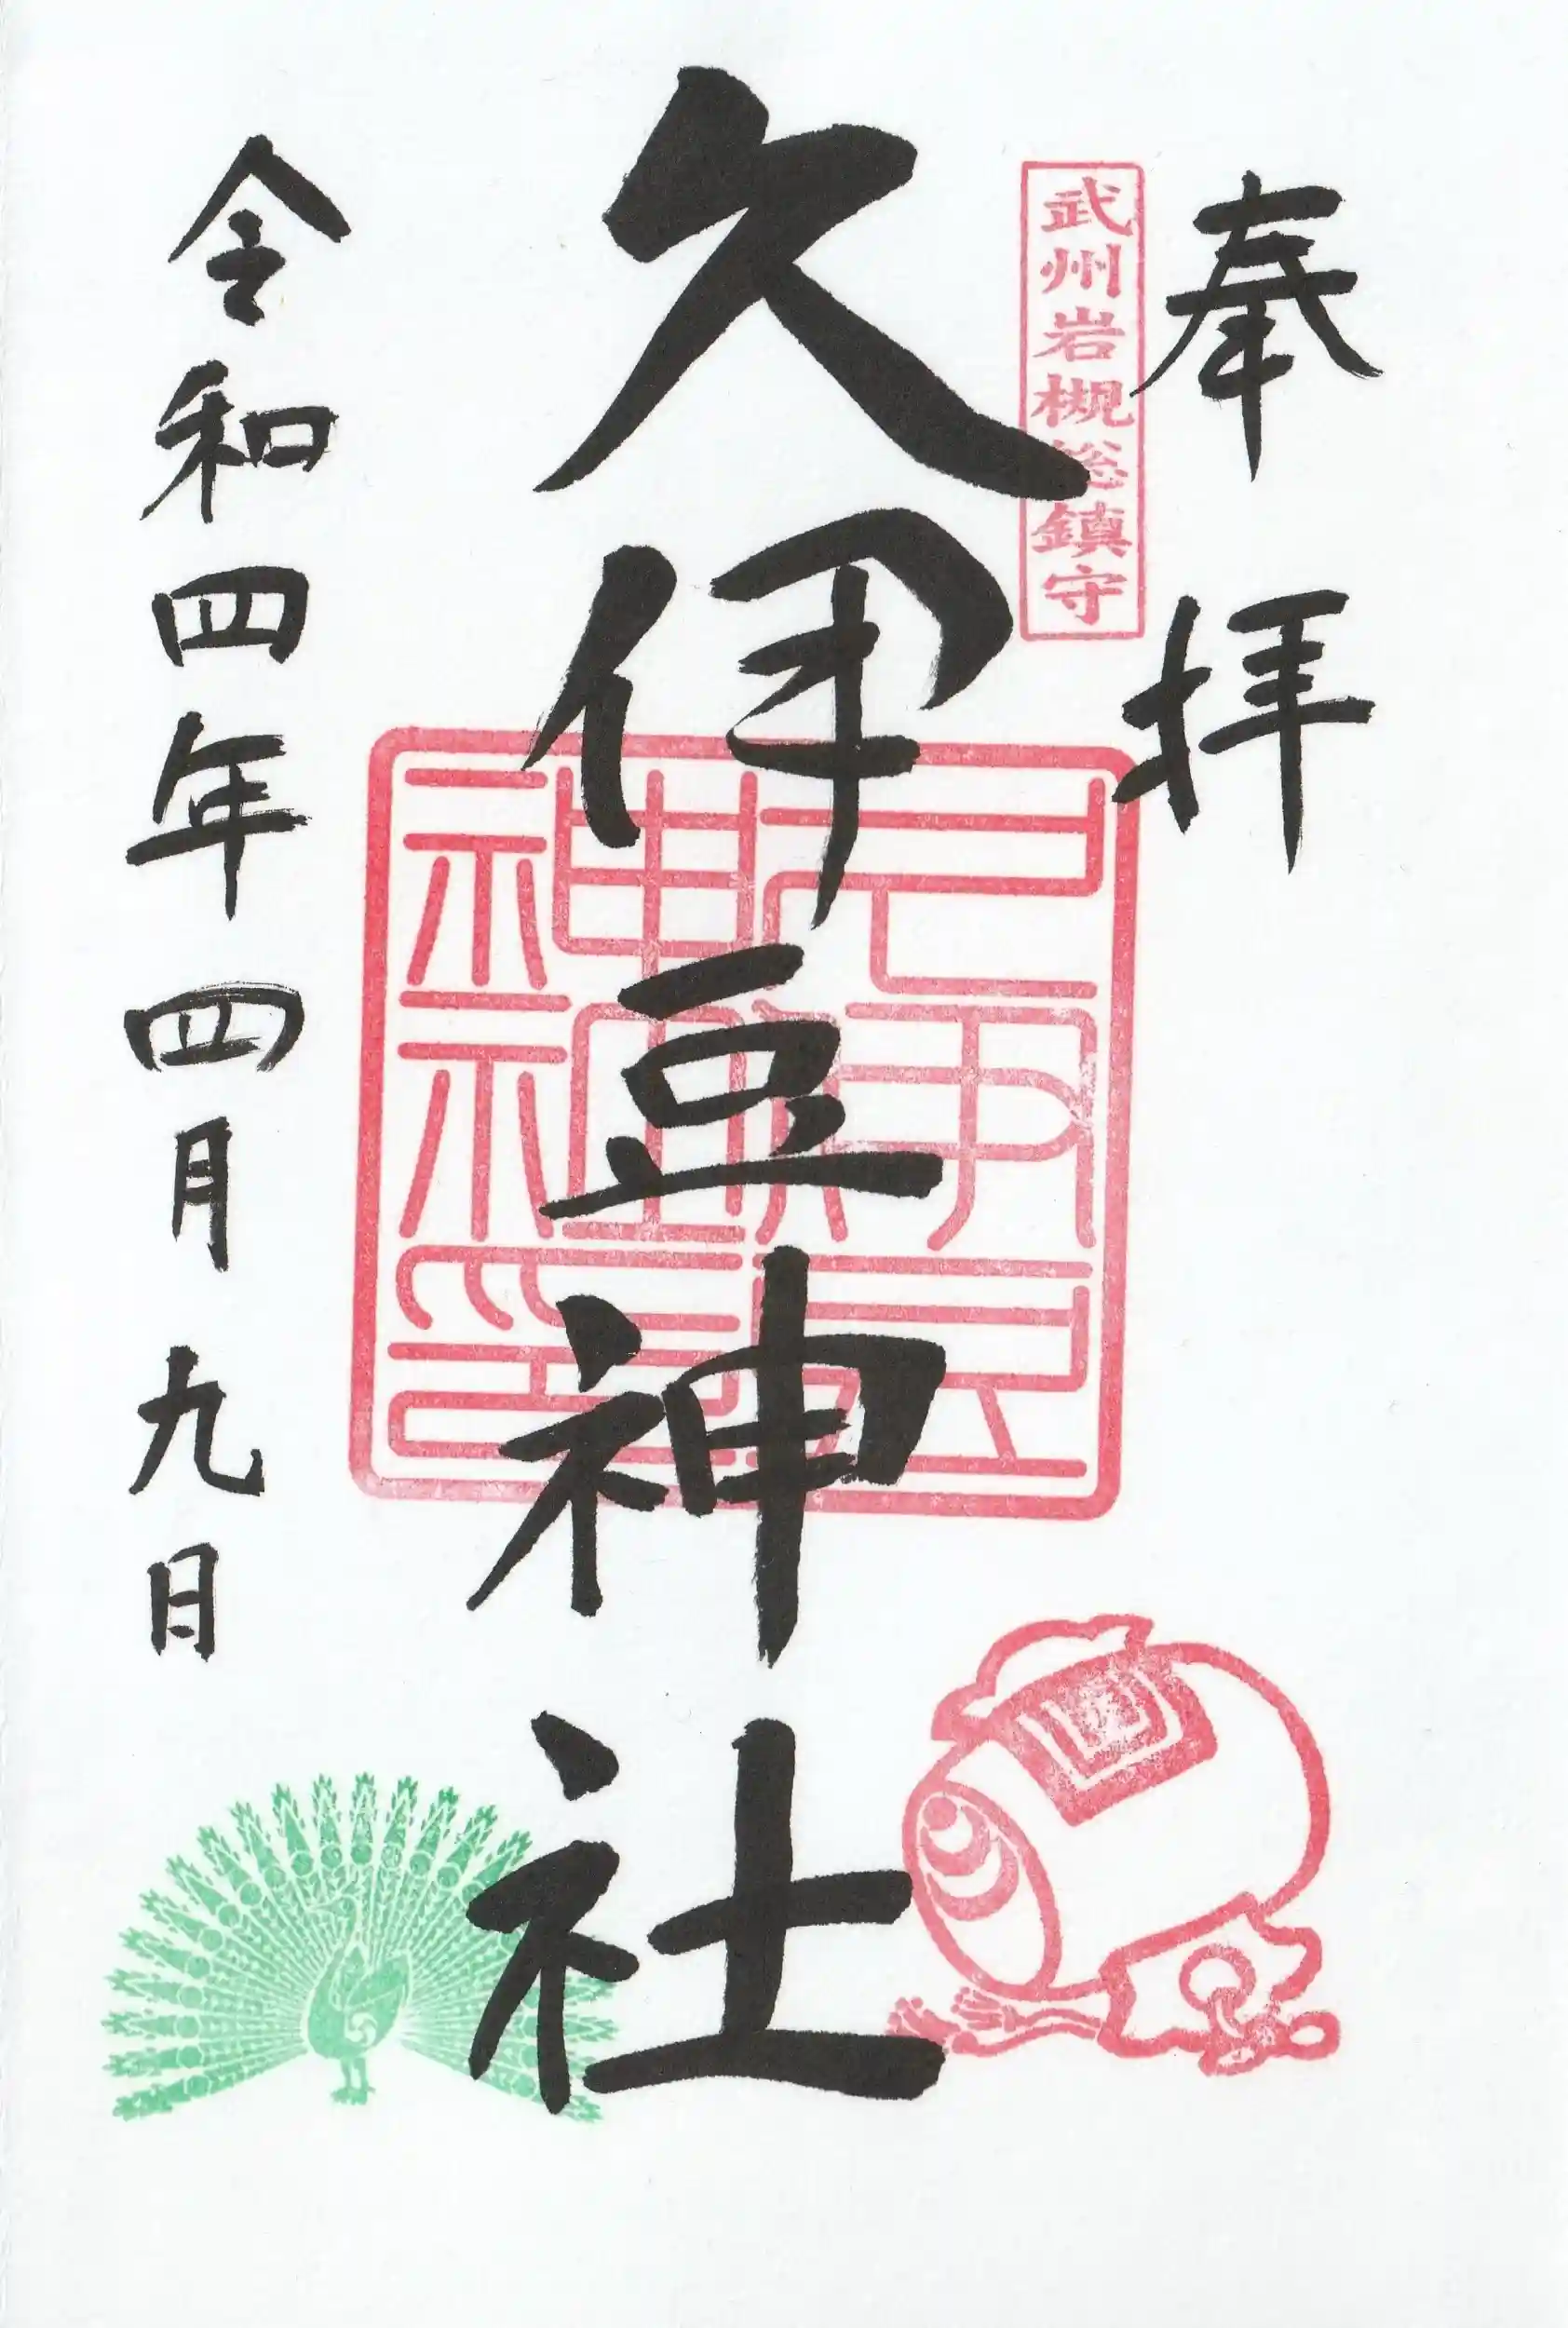 奉拝
武州岩槻総鎮守
久伊豆神社
久伊豆神社神印
令和四年四月九日